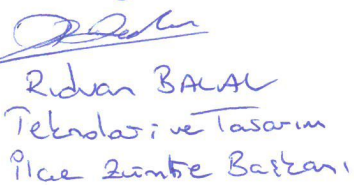 Rıdvan BALAL
Teknoloji ve Tasarım
İlçe Zümre Başkanı